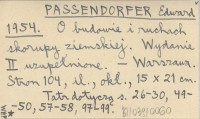 PASSENDORFER Edward
1954. O budowie i ruchach
skorupy ziemskiej. Wydanie
II uzupełnione. — Warszawa.
Stron 104, il., okł., 15 x 21 cm.
Tatr dotyczą s. 26-30, 49-
-50, 57-58, 97-99.